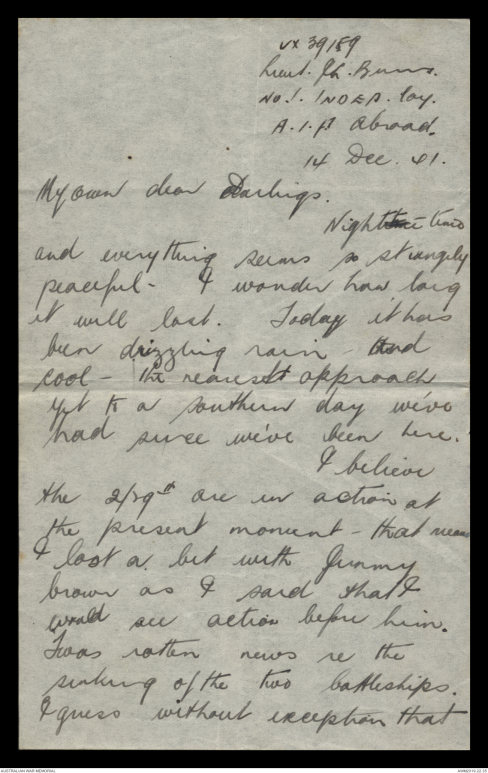 VX 39189
Lieut. J.L. Burns.
No. 1. INDEP. Coy.
A.I.F. Abroad.
14 Dec. 41.
My own dear Darlings.
Night time
and everything seems so strangely
peaceful - I wonder how long
it will last. Today it has
been drizzling rain - and
cool - the nearest approach
yet to a southern day we've
had since we've been here.
I believe
the 2/29th are in action at
the present moment - that means
I lost a bet with Jimmy
brown as I said that I
would see action before him.
Twas rotten news re the
sinking of the two battleships.
I guess without exception that
AUSTRALIAN WAR MEMORIAL